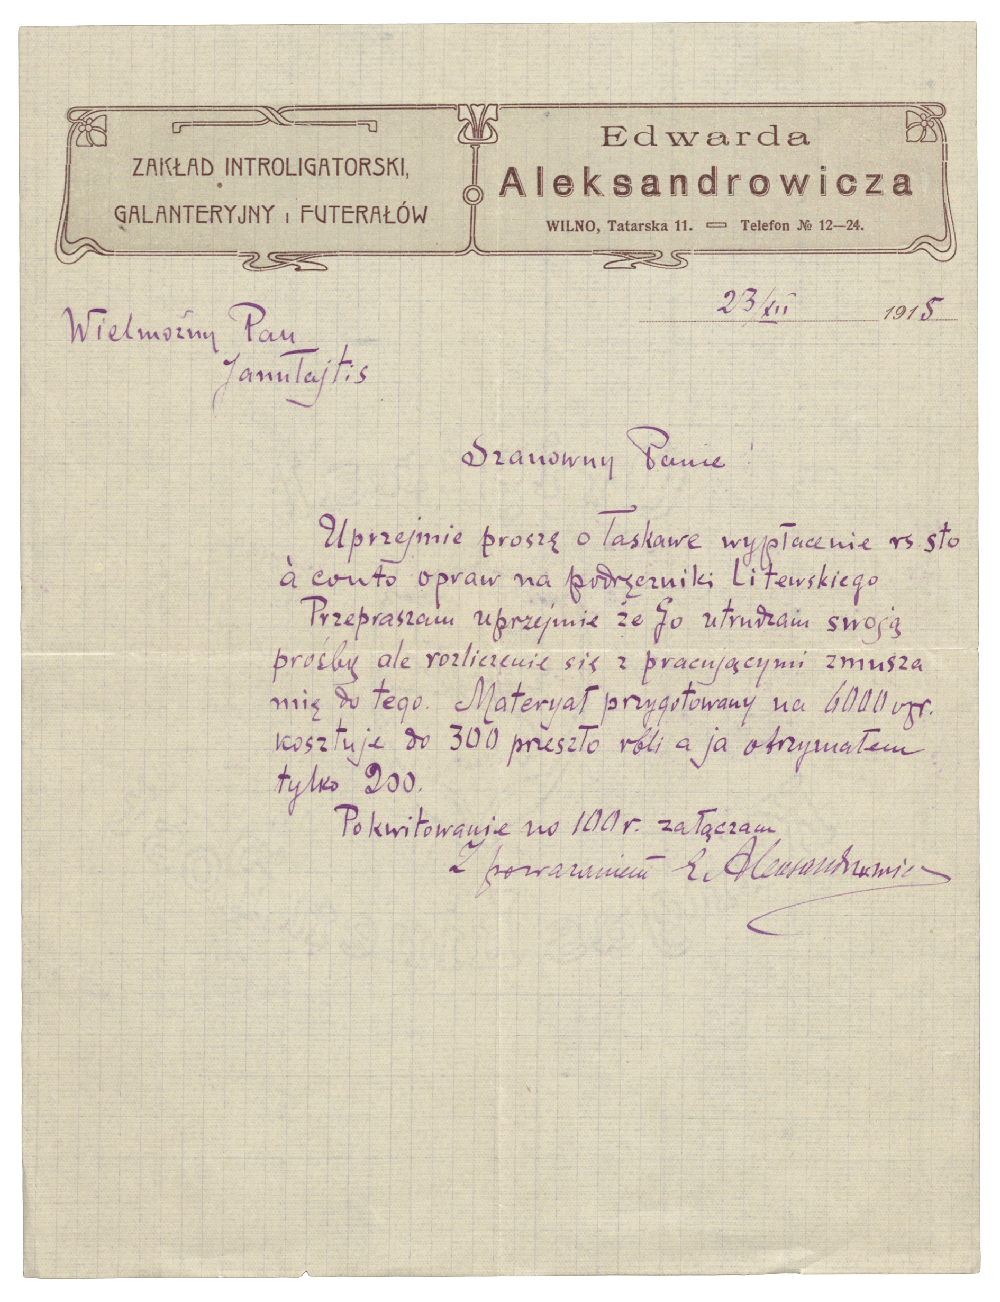 ZAKŁAD INTROLIGATORSKI,
GALANTERYJNY i FUTERAŁÓW
Edwarda
Aleksandrowicza
WILNO, Tatarska 11. — Telefon № 12—24.
23/XII 1915
Wielmożny Pan
Janułajtis
Szanowny Panie!
Uprzejmie proszę o łaskawe wypłacenie rs sto
à conto opraw na podręczniki Litewskiego
Przepraszam uprzejmie że Go utrudzam swoją
prośbę ale rozliczenie się z pracującymi zmusza
mię do tego. Materyał przygotowany na 6000 egz.
kosztuje do 300 przeszło rbli a ja otrzymałem
tylko 200.
Pokwitowanie na 100 r. załączam
Z poważaniem E. Aleksandrowicz